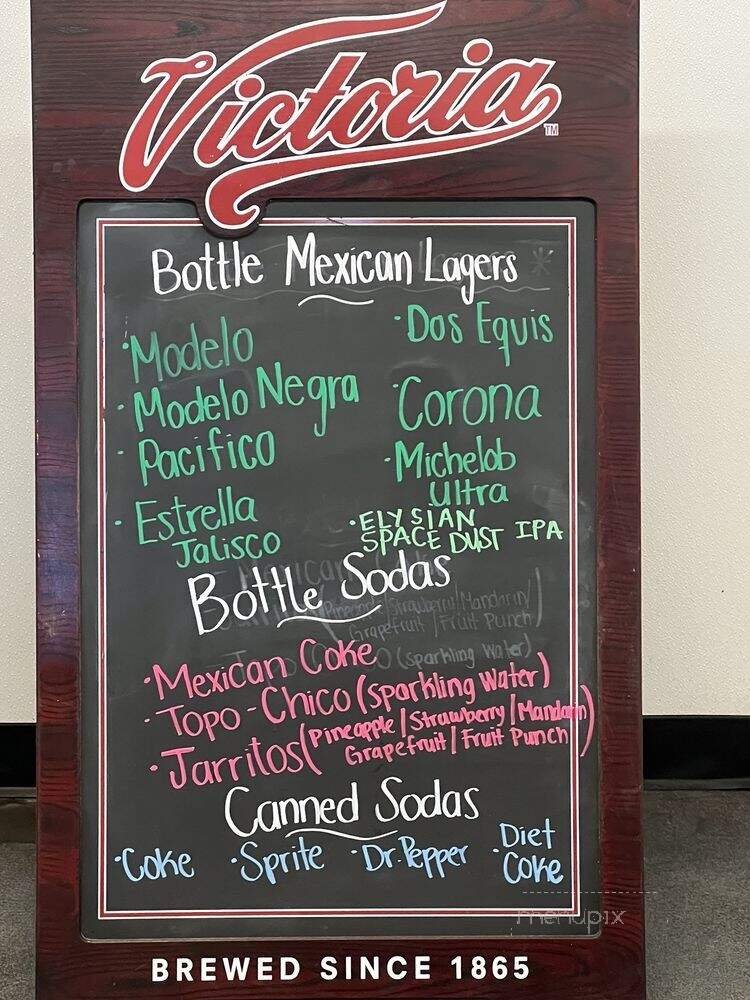 Victoria TM
Bottle Mexican Lagers
·Modelo
·Modelo Negra
·Pacifico
·Estrella
Jalisco
·Dos Equis
·Corona
·Michelob
Ultra
·ELYSIAN
SPACE DUST IPA
Bottle Sodas
·Mexican Coke
·Topo-Chico (Sparkling Water)
·Jarritos (Pineapple / Strawberry / Mandarin
Grapefruit / Fruit Punch)
Canned Sodas
·Coke ·Sprite ·Dr. Pepper ·Diet
Coke
menupix
BREWED SINCE 1865